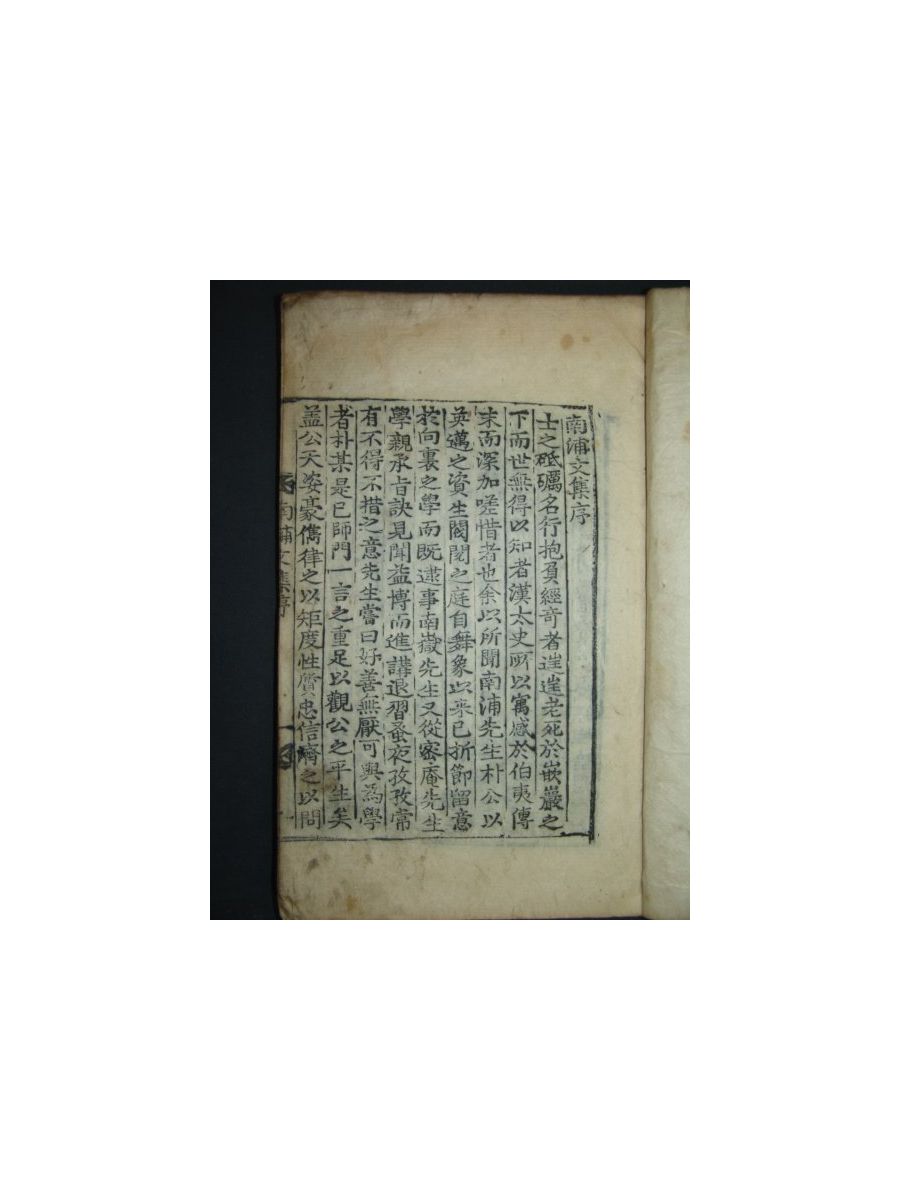 南浦文集序
士之砥礪名行抱負經奇者遑遑老死於嵌巖之
下而世無得以知者漢太史所以寓感於伯夷傳
末而深加嗟惜者也余以所聞南浦先生朴公以
英邁之資生閥閱之庭自舞象以来已折節留意
於向裏之學而既逮事南嶽先生又從密庵先生
學親承旨訣見聞益博而進講退習蚤夜孜孜常
有不得不措之意先生嘗曰好善無厭可與為學
者朴某是已師門一言之重足以觀公之平生矣
盖公天姿豪儁律之以矩度性質忠信濟之以問
南浦文集序
一